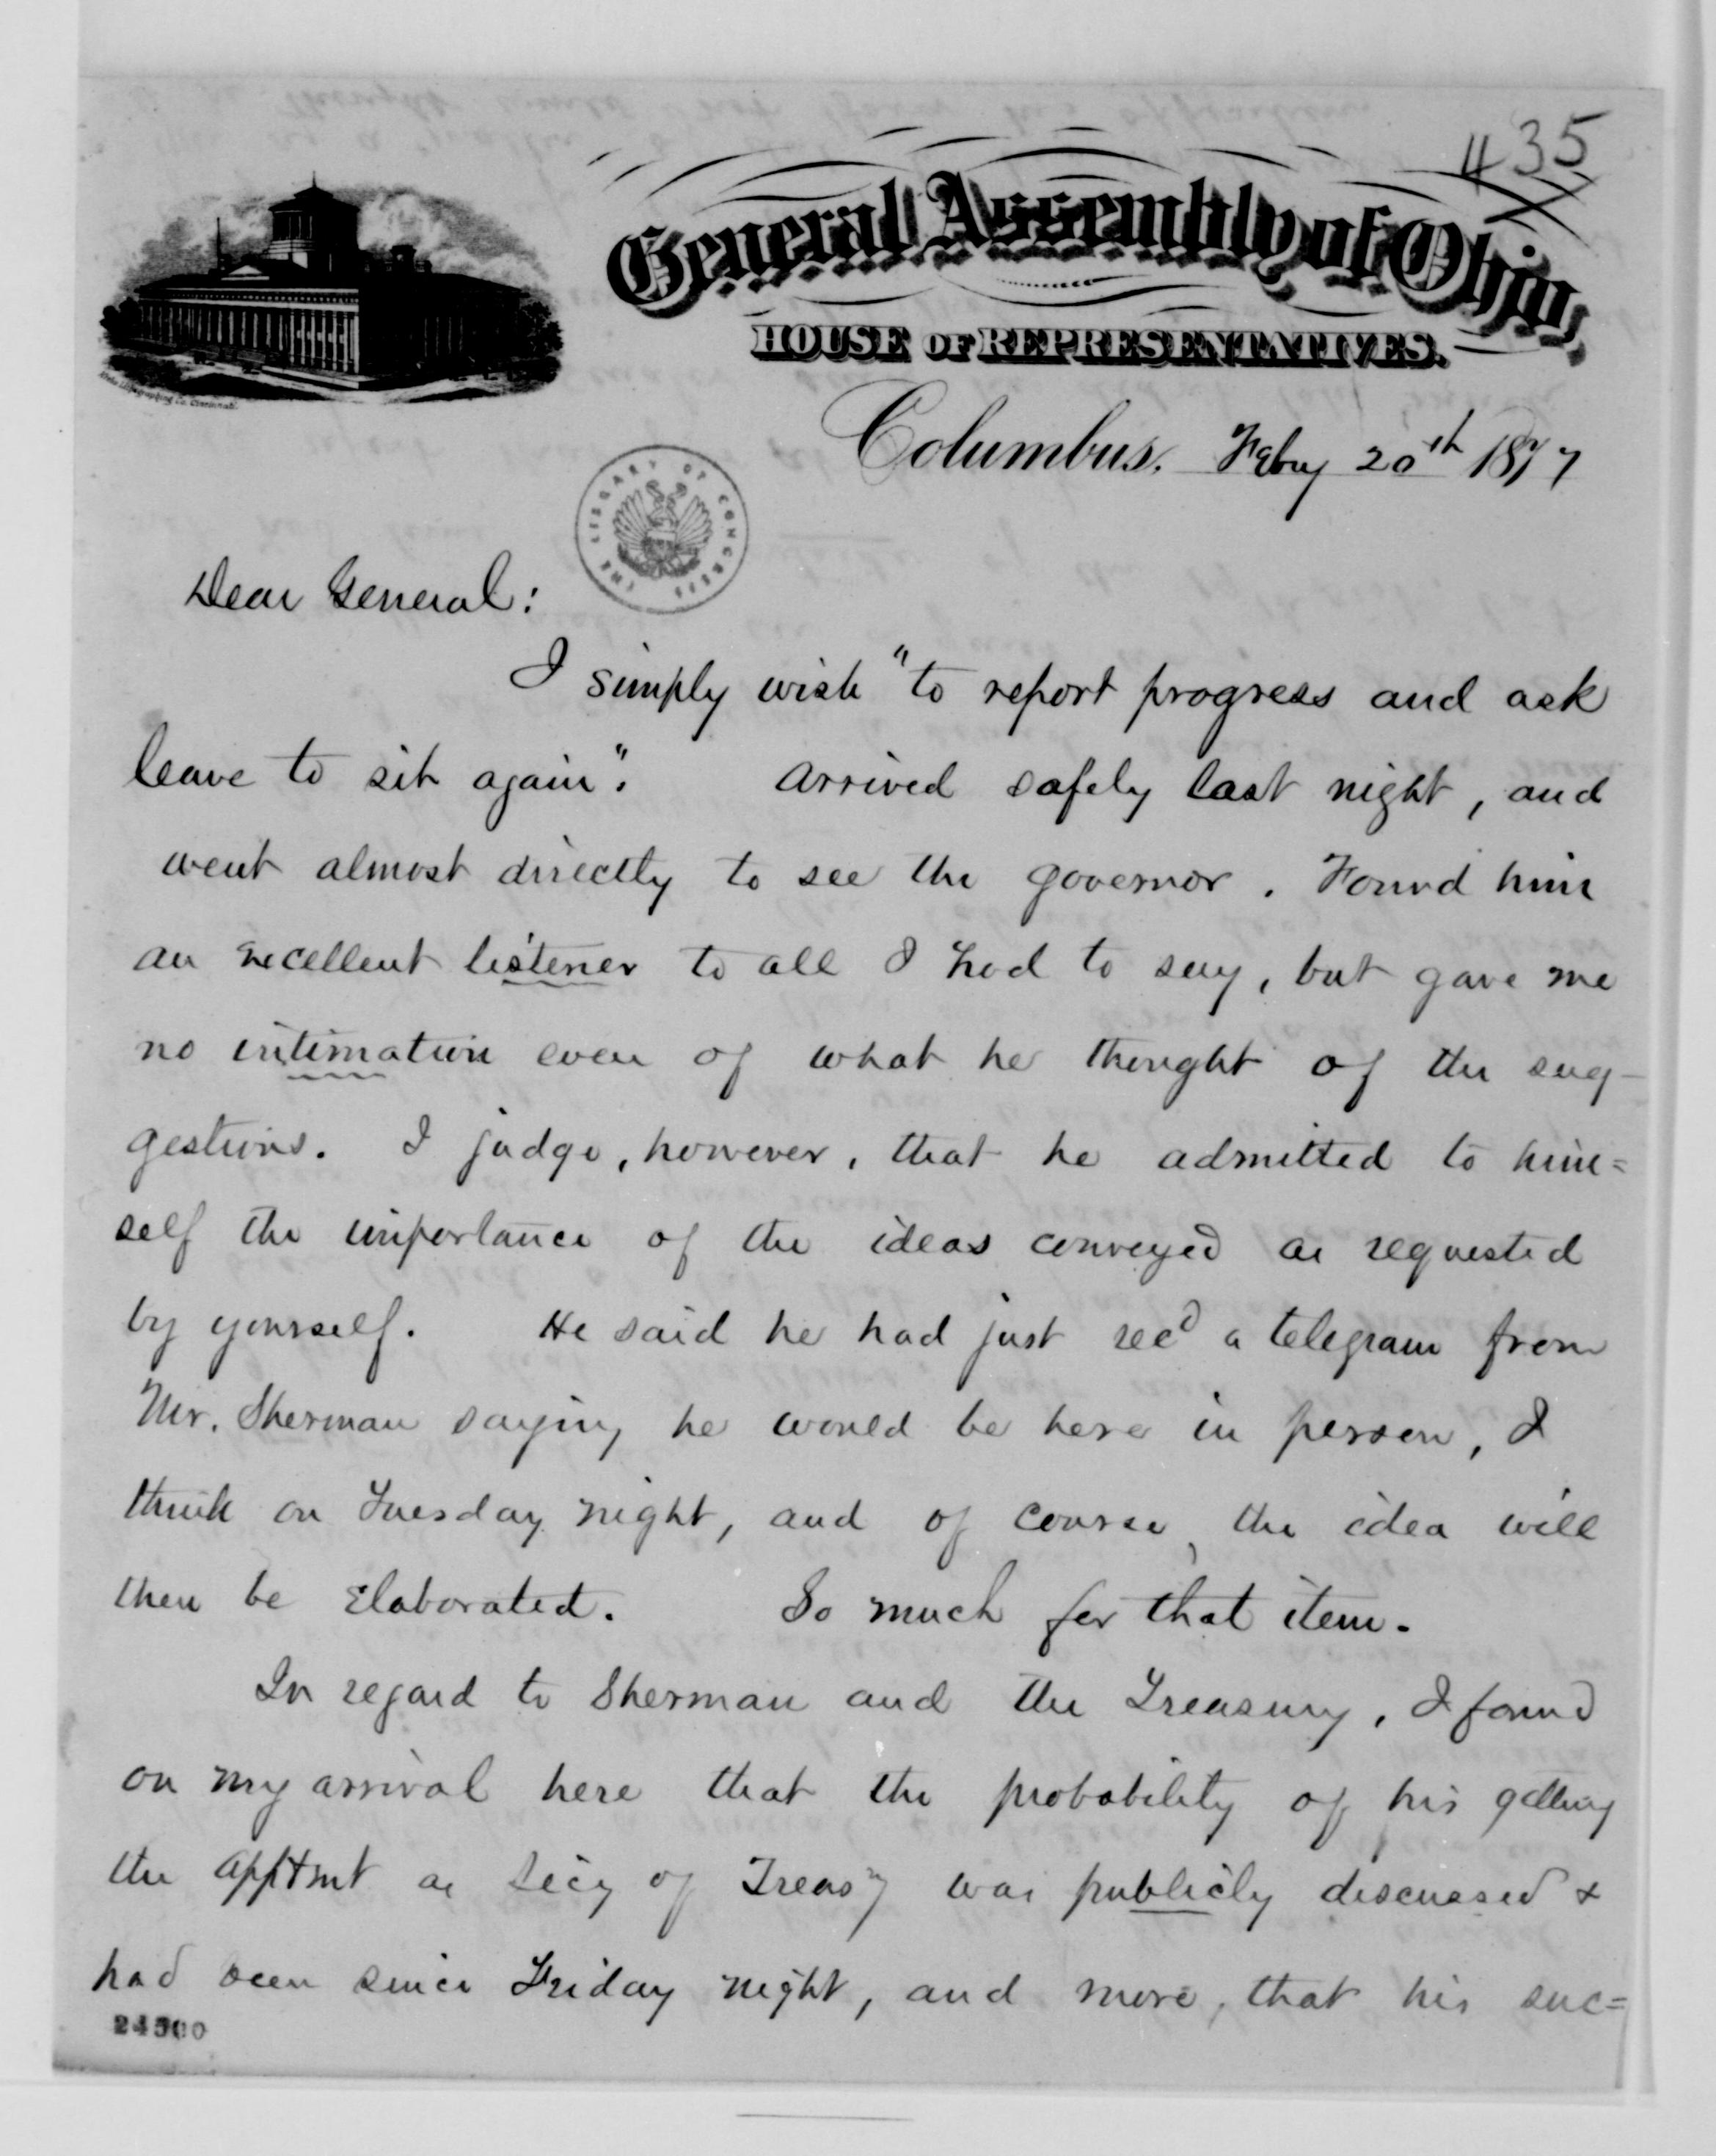 435
General Assembly of Ohio,
HOUSE OF REPRESENTATIVES.
Columbus, Feby 20th 1877
THE LIBRARY OF CONGRESS
Dear General:
I simply wish "to report progress and ask
leave to sit again". Arrived safely last night, and
went almost directly to see the governor. Found him
an excellent listener to all I had to say, but gave me
no intimation even of what he thought of the sug-
gestions. I judge, however, that he admitted to him=
self the importance of the ideas conveyed as requested
by yourself. He said he had just recd a telegram from
Mr. Sherman saying he would be here in person, I
think on Tuesday night, and of course, the idea will
then be elaborated. So much for that item.
In regard to Sherman and the Treasury, I found
on my arrival here that the probability of his getting
the apptmt as Secy of Treasy was publicly discussed &
had been since Friday night, and more, that his suc=
24500